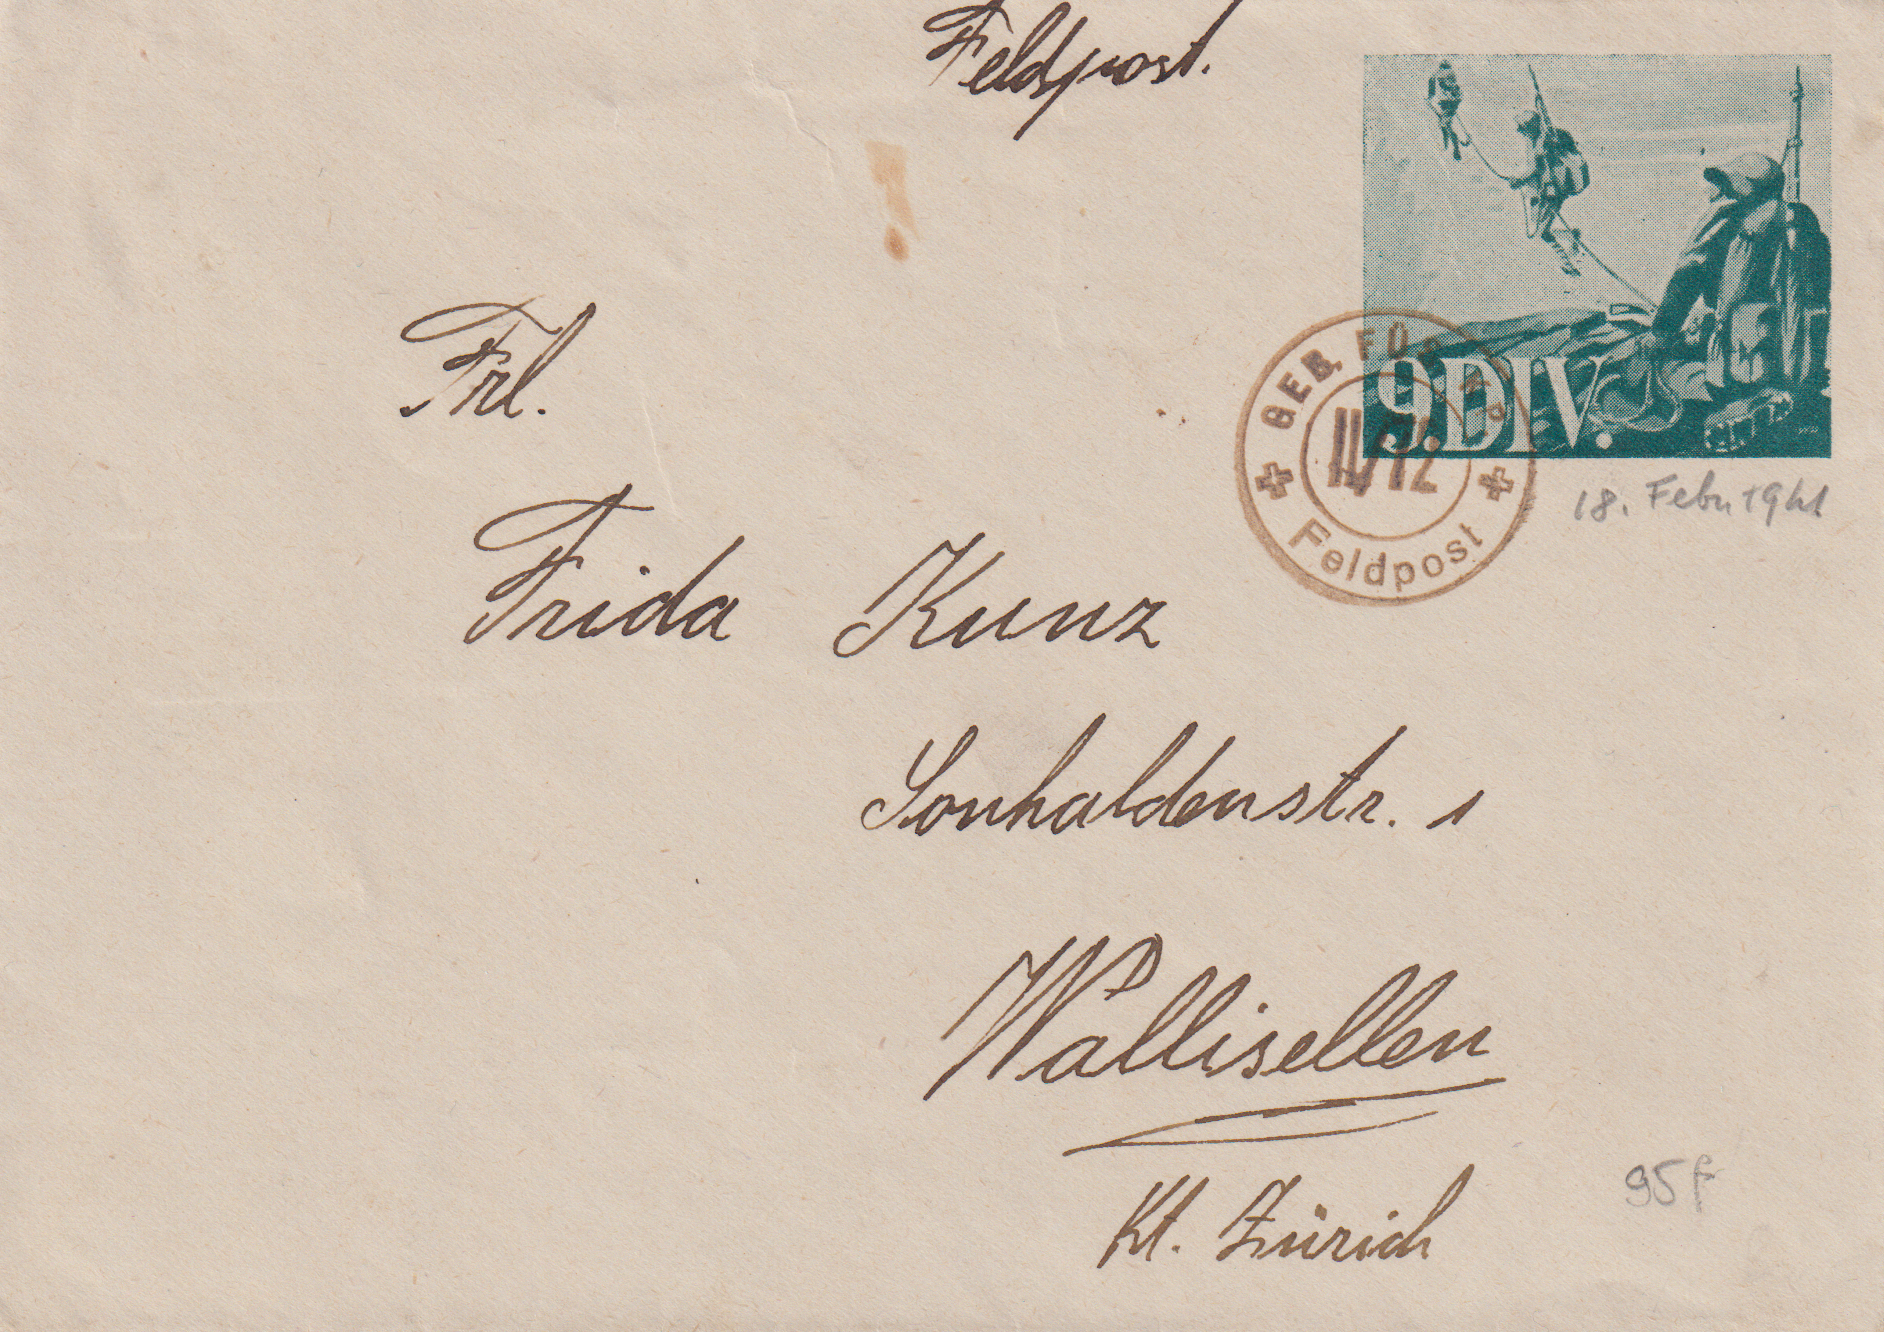 Feldpost.
9.DIV.
GEB. FÜS.
Feldpost
18. Febr. 1941
Frl.
Frida Kunz
Sonhaldenstr. 1
Wallisellen
Kt. Zürich
95f